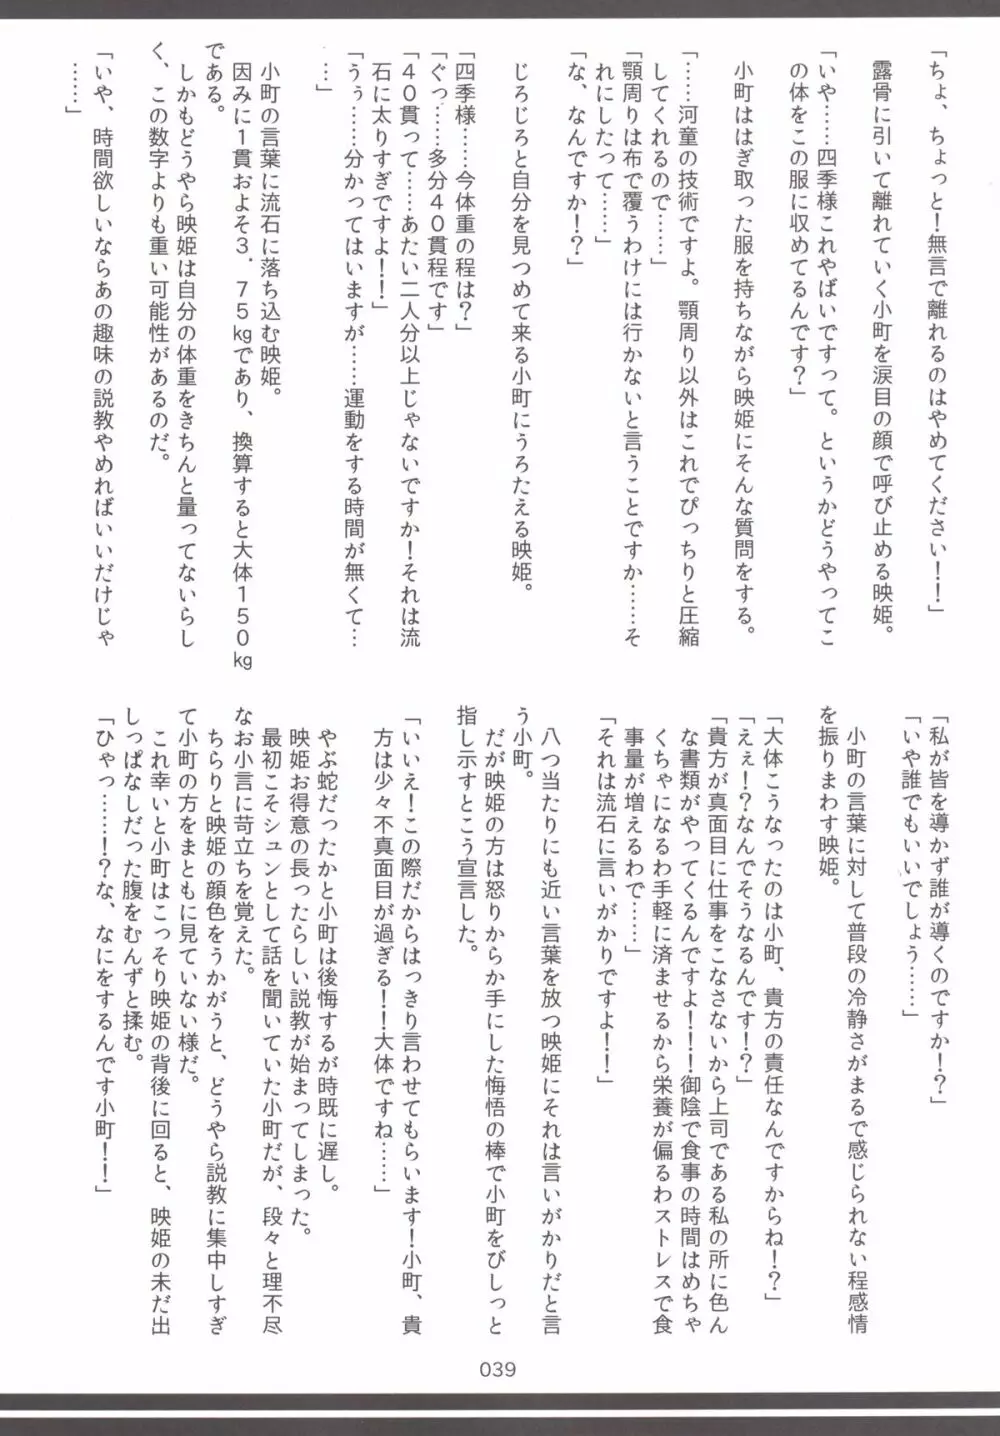 「ちょ、ちょっと！無言で離れるのはやめてください！！」
露骨に引いて離れていく小町を涙目の顔で呼び止める映姫。
「いや……四季様これやばいですって。というかどうやってこ
の体をこの服に収めてるんです？」
小町ははぎ取った服を持ちながら映姫にそんな質問をする。
「……河童の技術ですよ。顎周り以外はこれでぴっちりと圧縮
してくれるので……」
「顎周りは布で覆うわけには行かないと言うことですか……そ
れにしたって……」
「な、なんですか！？」
じろじろと自分を見つめて来る小町にうろたえる映姫。
「四季様……今体重の程は？」
「ぐっ……多分４０貫程です」
「４０貫って……あたい二人分以上じゃないですか！それは流
石に太りすぎですよ！！」
「うぅ……分かってはいますが……運動をする時間が無くて…
…」
小町の言葉に流石に落ち込む映姫。
因みに１貫およそ３．７５㎏であり、換算すると大体１５０㎏
である。
しかもどうやら映姫は自分の体重をきちんと量ってないらし
く、この数字よりも重い可能性があるのだ。
「いや、時間欲しいならあの趣味の説教やめればいいだけじゃ
……」
「私が皆を導かず誰が導くのですか！？」
「いや誰でもいいでしょう……」
小町の言葉に対して普段の冷静さがまるで感じられない程感情
を振りまわす映姫。
「大体こうなったのは小町、貴方の責任なんですからね！？」
「えぇ！？なんでそうなるんです！？」
「貴方が真面目に仕事をこなさないから上司である私の所に色ん
な書類がやってくるんですよ！！！御陰で食事の時間はめちゃ
くちゃになるわ手軽に済ませるから栄養が偏るわストレスで食
事量が増えるわで……」
「それは流石に言いがかりですよ！！」
八つ当たりにも近い言葉を放つ映姫にそれは言いがかりだと言
う小町。
だが映姫の方は怒りからか手にした悔悟の棒で小町をびしっと
指し示すとこう宣言した。
「いいえ！この際だからはっきり言わせてもらいます！小町、貴
方は少々不真面目が過ぎる！！大体ですね……」
やぶ蛇だったかと小町は後悔するが時既に遅し。
映姫お得意の長ったらしい説教が始まってしまった。
最初こそシュンとして話を聞いていた小町だが、段々と理不尽
なお小言に苛立ちを覚えた。
ちらりと映姫の顔色をうかがうと、どうやら説教に集中しすぎ
て小町の方をまともに見ていない様だ。
これ幸いと小町はこっそり映姫の背後に回ると、映姫の未だ出
しっぱなしだった腹をむんずと揉む。
「ひゃっ……！？な、なにをするんです小町！！」
039